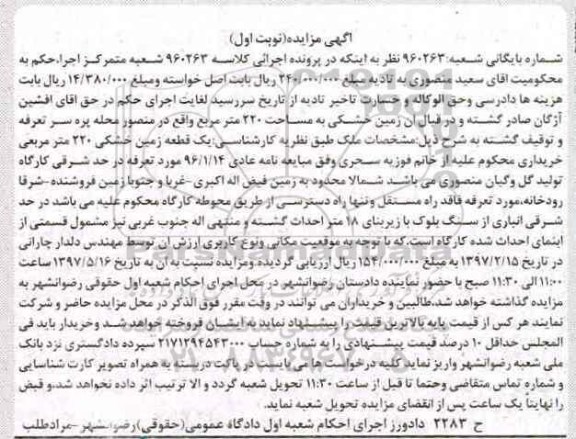 آگهی مزایده(نوبت اول)
شماره بایگانی شعبه:۹۶۰۲۶۳ نظر به اینکه در پرونده اجرائی کلاسه ۹۶۰۲۶۳ شعبه متمرکز اجرا،حکم به
محکومیت اقای سعید منصوری به تادیه مبلغ ۲۴۰/۰۰۰/۰۰۰ ریال بابت اصل خواسته ومبلغ ۱۴/۳۸۰/۰۰۰ ریال بابت
هزینه ها دادرسی وحق الوکاله و خسارت تاخیر تادیه از تاریخ سررسید لغایت اجرای حکم در حق اقای افشین
آژگان صادر گشته و در قبال آن زمین خشکی به مساحت ۲۲۰ متر مربع واقع در منصور محله پره سر تعرفه
و توقیف گشته به شرح ذیل:مشخصات ملک طبق نظریه کارشناسی:یک قطعه زمین خشکی ۲۲۰ متر مربعی
خریداری محکوم علیه از خانم فوزیه سحری وفق مبایعه نامه عادی ۹۶/۱/۱۴ مورد تعرفه در حد شرقی کارگاه
تولید گل وگیان منصوری می باشد شمالا محدود به زمین فیض اله اکبری -غربا و جنوبا زمین فروشنده -شرقا
رودخانه،مورد تعرفه فاقد راه مستقل وتنها راه دسترسی از طریق محوطه کارگاه محکوم علیه می باشد در حد
شرقی انباری از سنگ بلوک با زیربنای ۱۸ متر احداث گشته و منتهی اله جنوب غربی نیز مشمول قسمتی از
ابتمای احداث شده کارگاه است.که با توجه به موقعیت مکانی ونوع کاربری ارزش آن توسط مهندس دلدار چارانی
در تاریخ ۱۳۹۷/۲/۱۵ به مبلغ ۱۵۴/۰۰۰/۰۰۰ ریال ارزیابی گردیده ومزایده نسبت به آن به تاریخ ۱۳۹۷/۵/۱۶ ساعت
۱۱:۰۰ الی ۱۱:۳۰ صبح با حضور نماینده دادستان رضوانشهر در محل اجرای احکام شعبه اول حقوقی رضوانشهر به
مزایده گذاشته خواهد شد.طالبین و خریداران می توانند در وقت مقرر فوق الذکر در محل مزایده حاضر و شرکت
نمایند هر کس از قیمت پایه بالاترین قیمت را پیشنهاد نماید به ایشان فروخته خواهد شد وخریدار باید فی
المجلس حداقل ۱۰ درصد قیمت پیشنهادی را به شماره حساب ۲۱۷۱۲۹۴۵۴۳۰۰۰ سپرده دادگستری نزد بانک
ملی شعبه رضوانشهر واریز نماید کلیه درخواست ها می بایست در پاکت دربسته به همراه تصویر کارت شناسایی
و شماره تماس متقاضی وحتما تا قبل از ساعت ۱۱:۳۰ تحویل شعبه گردد و الا ترتیب اثر داده نخواهد شد.و قبض
را نهایتا یک ساعت پس از انقضای مزایده تحویل شعبه نماید.
ح ۲۲۸۳ دادورز اجرای احکام شعبه اول دادگاه عمومی(حقوقی)رضوانشهر-مرادطلب